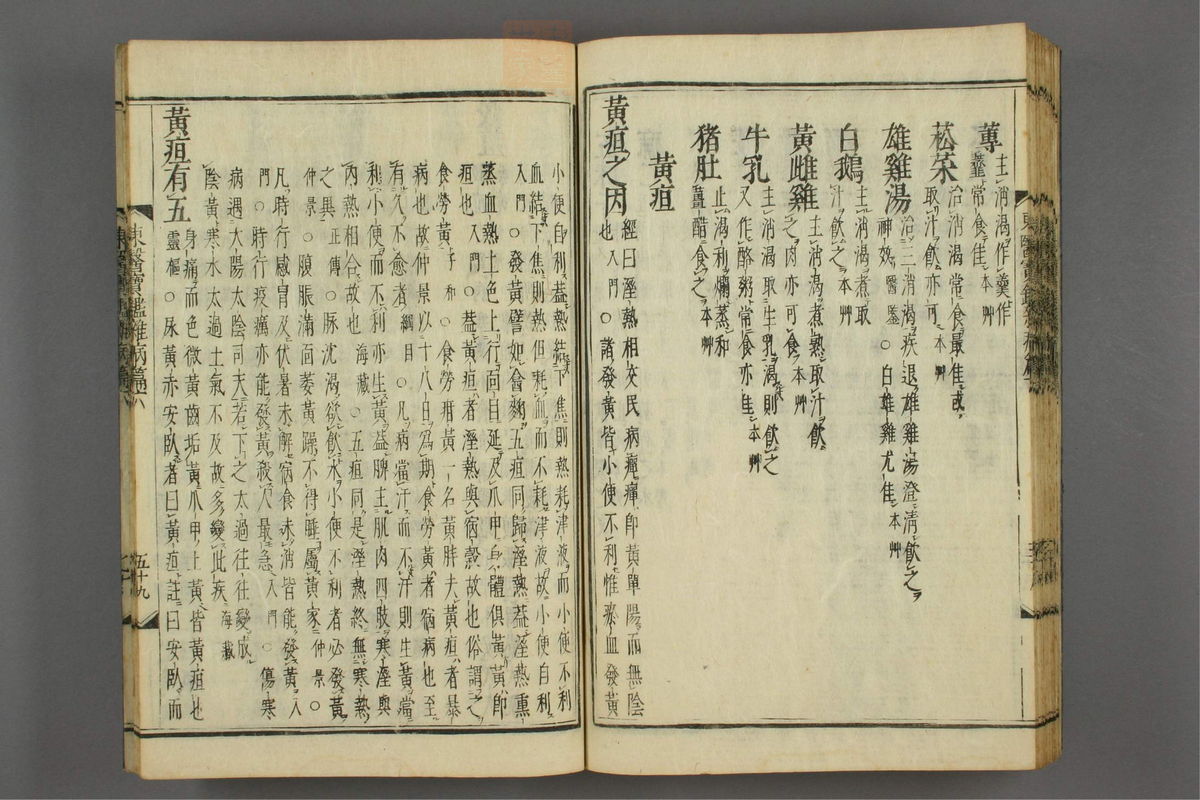 蓴
主消渴作羹作
虀常食佳本艸
菘菜
治消渴常食最佳或
取汁飮亦可本艸
雄雞湯
治三消渴疾退雄雞湯澄淸飮之
神效醫鑒○白雄雞尤佳本艸
白鵝
主消渴煮取
汁飮之本艸
黃雌雞
主消渴煮熟取汁飮
之肉亦可食本艸
牛乳
主消渴取生乳渴則飮之
又作酪粥常食亦佳本艸
猪肚
止渴利爛蒸和
薑醋食之本艸
黃疸
黃疸之因
經曰溼熱相交民病癉癉卽黃單陽而無陰
也入門○諸發黃皆小便不利惟瘀血發黃
小便自利盖熱結下焦則熱耗津液而小便不利
血結下焦則熱但耗血而不耗津液故小便自利
入門○發黃譬如盦麴五疸同歸溼熱盖溼熱熏
蒸血熱土色上行面目延及爪甲身體俱黃黃卽
疸也入門○盖黃疸者溼熱與宿糓故也俗謂之
食勞黃子和○食勞疳黃一名黃胖夫黃疸者暴
病也故仲景以十八日爲期食勞黃者宿病也至
有久不愈者綱目○凡病當汗而不汗則生黃當
利小便而不利亦生黃盖脾主肌肉四肢寒溼與
內熱相合故也海藏○五疸同是溼熱終無寒熱
之異正傳○脉沈渴欲飮水小便不利者必發黃
仲景○腹脹滿面萎黃躁不得睡屬黃家仲景○
凡時行感冒及伏暑未解宿食未消皆能發黃入
門○時行疫癘亦能發黃殺人最急入門○傷寒
病遇太陽太陰司天若下之太過往往變成
陰黃寒水太過土氣不及故多變此疾海藏
黃疸有五
身痛而色微黃齒垢黃爪甲上黃皆黃疸也
靈樞○尿黃赤安臥者曰黃疸註曰安臥而
東醫寶鑑雜病篇六
五十九